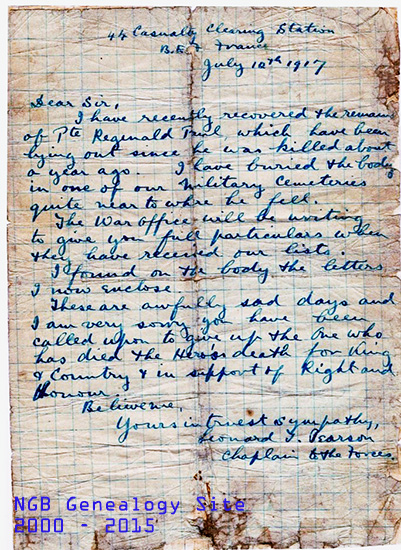 44 Casualty Clearing Station
B.E.F. France
July 10th 1917
Dear Sir,
I have recently recovered the remains
of Pte Reginald which have been
lying out since he was killed about
a year ago. I have buried the body
in one of our Military Cemeteries
quite near to where he fell.
The War Office will be writing
to give you full particulars when
they have received our lists.
I found on the body the letters
I now enclose.
These are awfully sad days and
I am very sorry you have been
called upon to give up the one who
has died the Hero's death for King
& Country & in support of Right and
Honour.
Believe me,
Yours in truest sympathy,
Leonard T. Pearson
Chaplain to the Forces.
NGB Genealogy Site
2000 - 2015